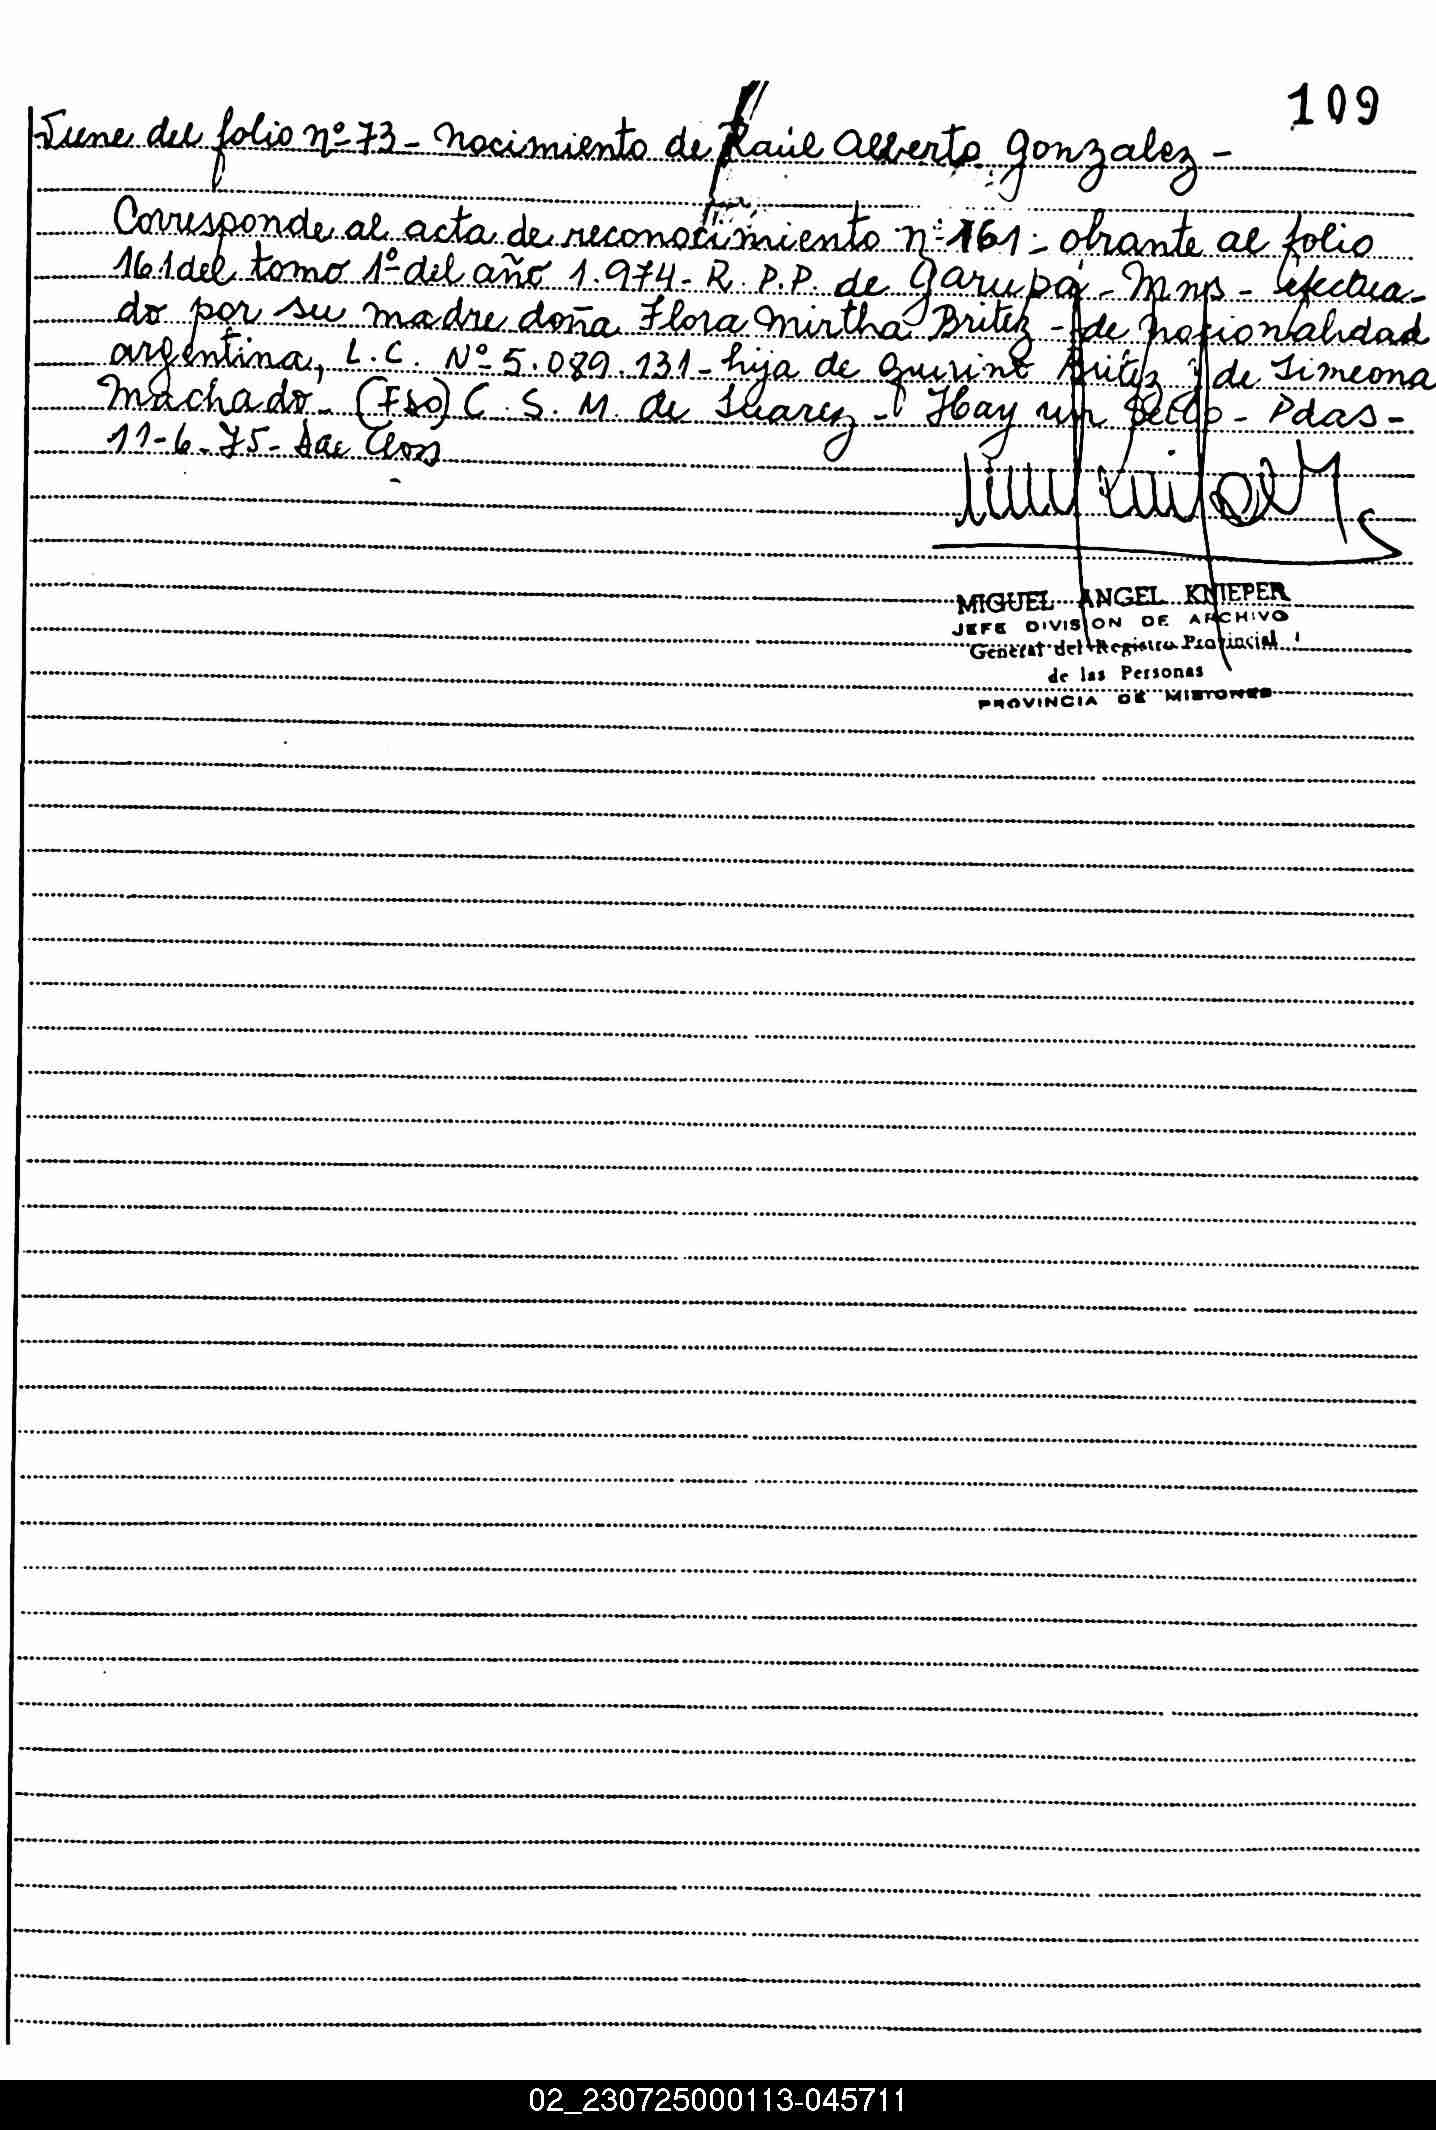 109
Viene del folio nº 73 - Nacimiento de Raúl Alberto Gonzalez -
Corresponde al acta de reconocimiento nº 161 - obrante al folio
161 del tomo 1º del año 1.974 - R. P. P. de Garupá - Mns - Efectua-
do por su madre doña Flora Mirtha Britez - de nacionalidad
argentina, L. C. Nº 5.089.131 - hija de Quirino Britez y de Simeona
Machado - (Fdo) C. S. M. de Suarez - Hay un sello - Pdas -
11-6-75 -
MIGUEL ANGEL KNIEPER
JEFE DIVISION DE ARCHIVO
General del Registro Provincial
de las Personas
PROVINCIA DE MISIONES
02_230725000113-045711